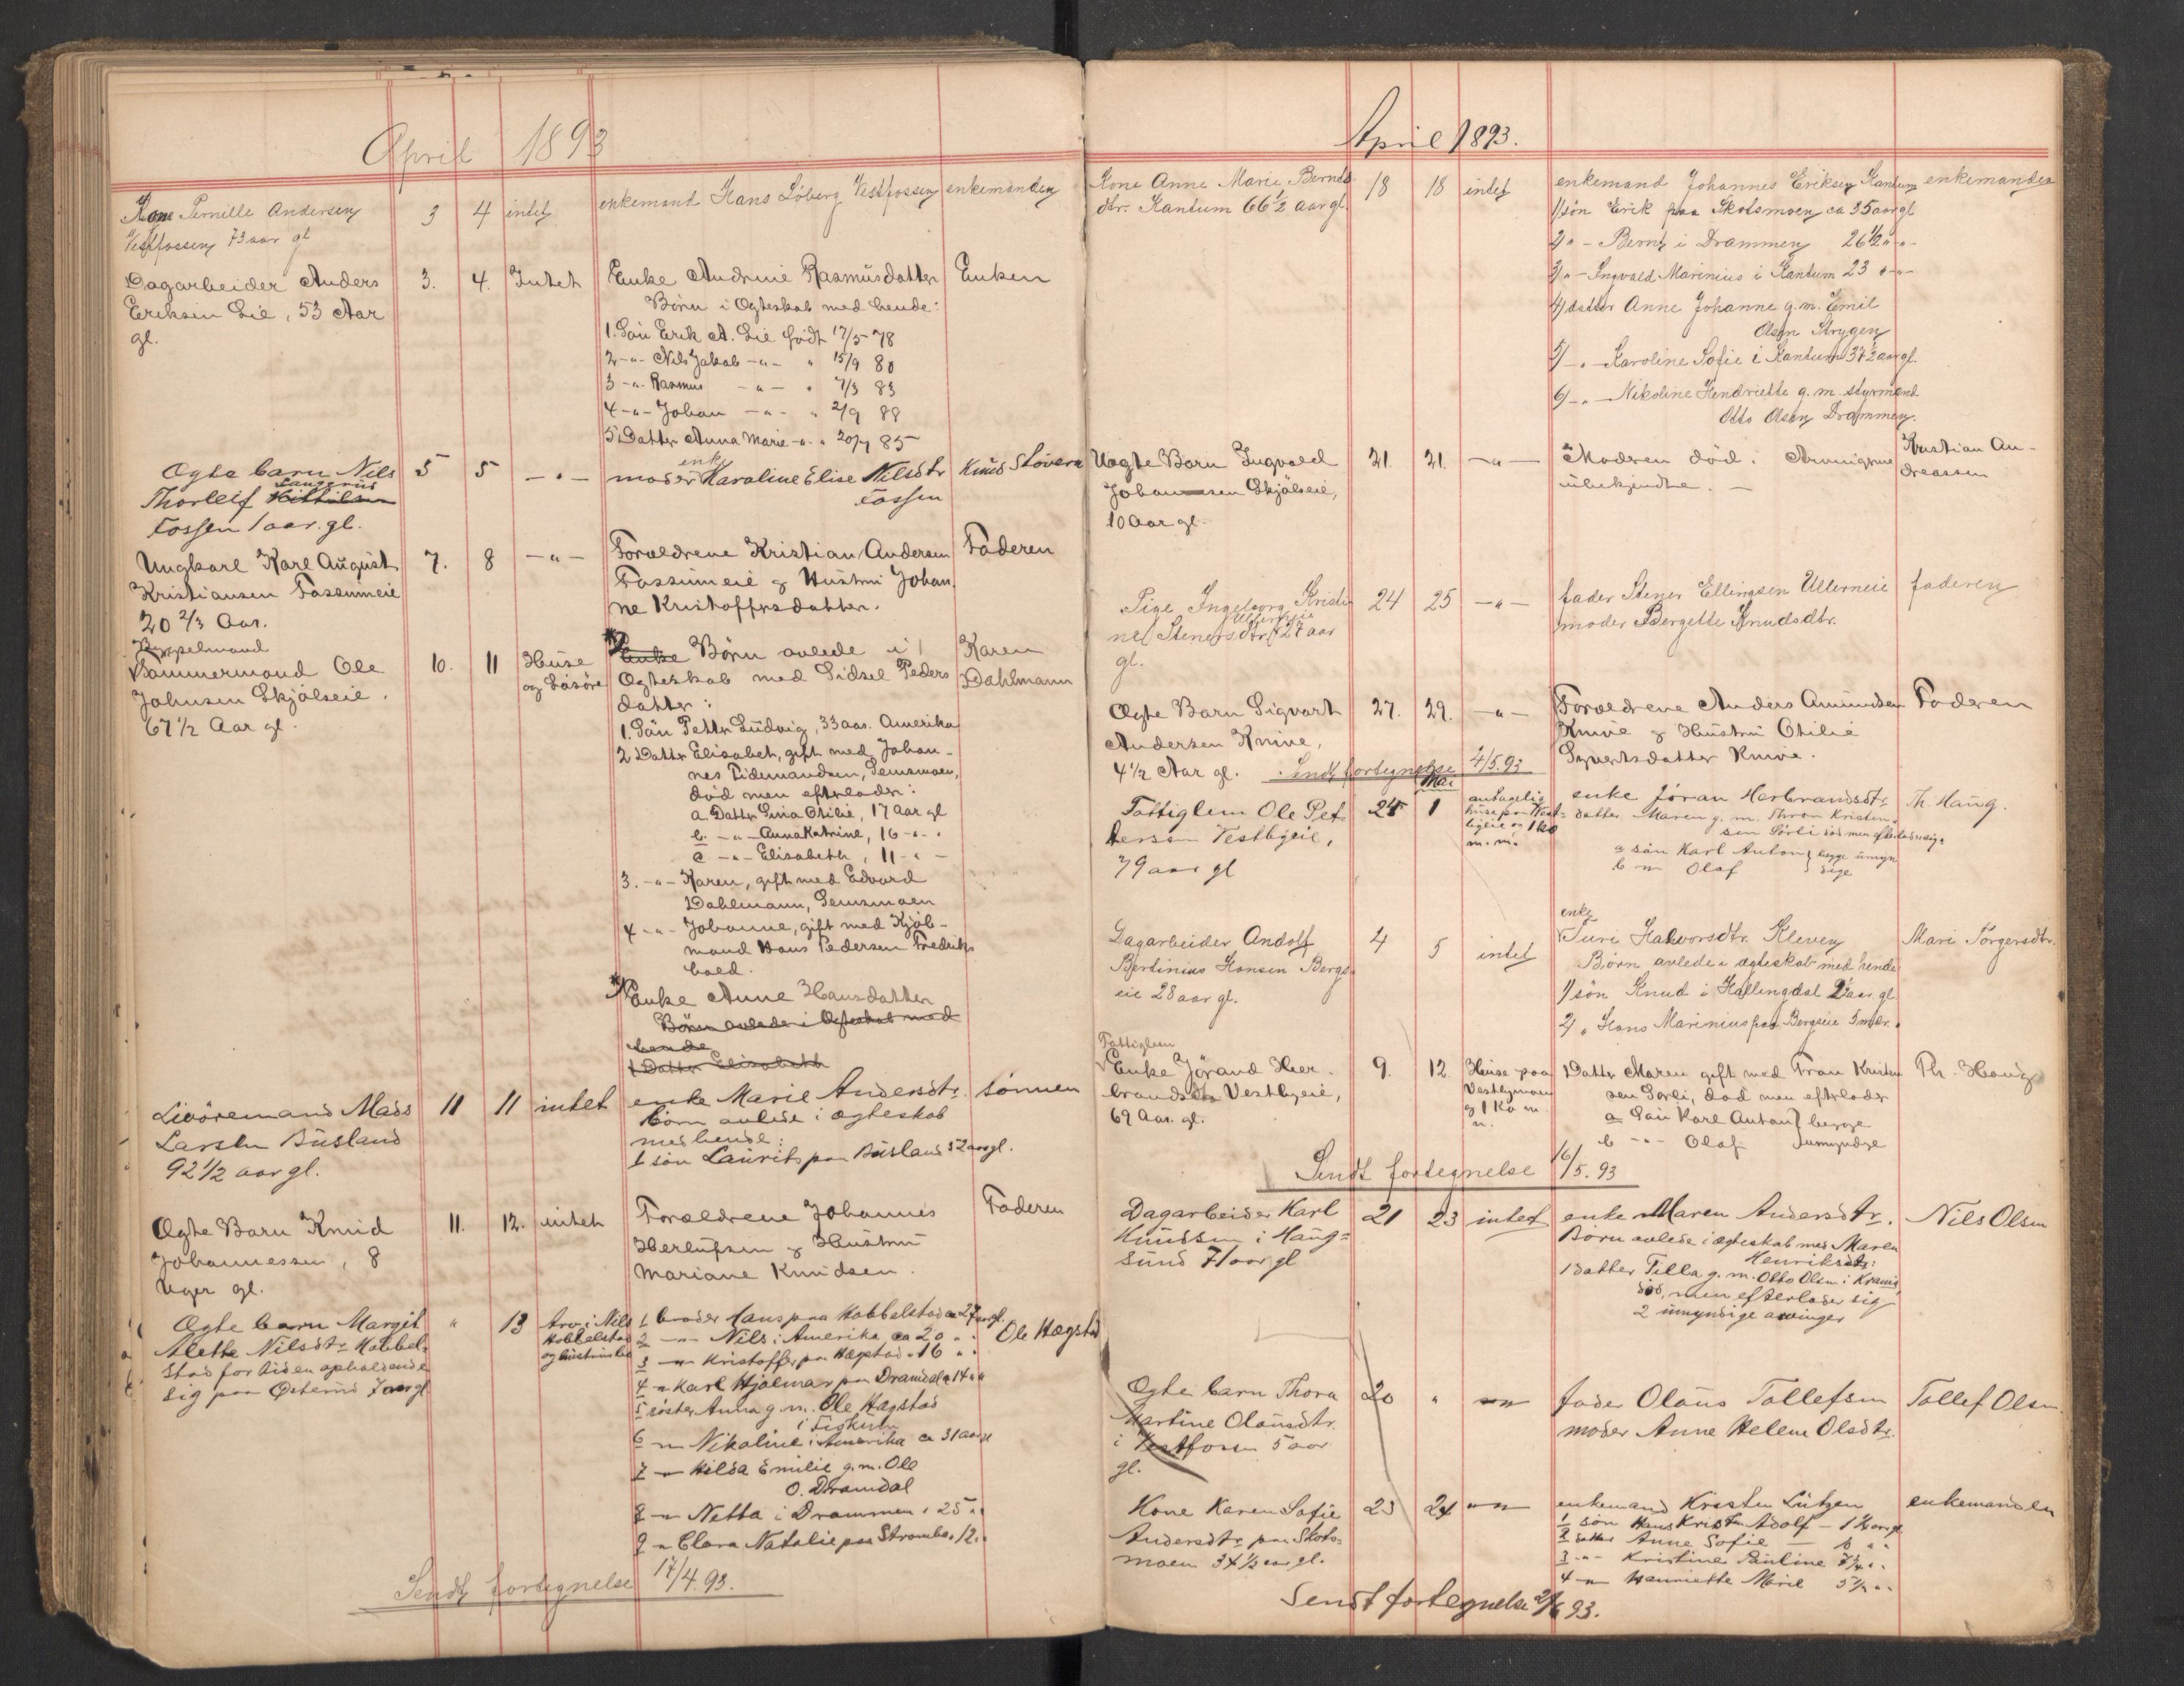 April 1893
Kone Pernille Andersen 3 4 intet enkemand Hans Løberg Vestfossen enkemanden
Vestfossen 73 aar gl
Dagarbeider Anders 3. 4. Intet Enke Andrine Rasmusdatter Enken
Eriksen Lie, 53 Aar Børn i Ægteskab med hende:
gl. 1. Søn Erik A. Lie født 17/5 78
2 -"- Nils Jakob -"- " 15/9 80
3 -"- Rasmus -"- " 7/3 83
4 -"- Johan -"- " 2/9 88
5 Datter Anna Marie -"- " 20/7 85
Ægte barn Nils 5 5 -"- moder enke Karoline Elise Nilsdtr Knud Støvern
Thorleif Langerud Fossen
Fossen 1 aar. gl.
Ungkarl Karl August 7. 8 -"- Forældrene Kristian Andersen Faderen
Kristiansen Fossumeie Fossumeie & Hustru Johan
20 2/3 Aar. ne Kristoffersdatter.
Tømmermand Ole 10. 11 Huse Enke Børn avlede i Karen
Johnsen Skjølseie. og Løsøre Ægteskab med Sidsel Peders Dahlmann
67 1/2 Aar gl. datter:
1. Søn Petter Ludvig, 33 aar. Amerika
2 Datter Elisabet, gift med Johan-
nes Tidemandsen, Semsmoen,
død men efterlader:
a. Datter Gina Otilie, 17 Aar gl
b. -"- Anna Katrine, 16 -"- "
c -"- Elisabeth, 11 -"-
3. -"- Karen, gift med Edvard
Dahlmann, Semsmoen
4 -"- Johanne, gift med Kjøb-
mand Hans Pedersen Fredriks
hald.
enke Anne Hansdatter
Børn avlede i Ægteskab med
hende
1 Datter Elisabeth
Livøremand Mads 11 11 intet enke Marie Andersdtr. sønnen
Larsen Busland børn avlede i ægteskab
92 1/2 aar gl. med hende:
1 søn Laurits paa Busland 52 aar gl.
Ægte Barn Knud 11. 12. intet Forældrene Johannes Faderen
Johannessen, 8 Herlufsen & Hustru
Uger gl. Mariane Knudsen.
Ægte barn Margit " 13 Arv i Nils 1 broder Hans paa Hobbelstad ca 27 aar gl.
Alette Nilsdtr Hobbel- Hobbelstad 2 -"- Nils i Amerika ca 20 " " Ole Hægstad
stad for tiden opholdende og hustrus bo 3 -"- Kristoffer paa Hægstad " 16 " "
sig paa Østerud 7 aar gl 4 -"- Karl Hjalmar paa Dramdal " 14 " "
5 søster Anna g. m. Ole Hægstad
i Fiskum
6 -"- Nikoline i Amerika ca 31 aar gl
7 -"- Hilda Emilie g. m. Ole
O. Dramdal
8 -"- Netta i Drammen " 25 "
9 -"- Clara Natalie paa Strømbo " 12 "
Sendt fortegnelse 17/4.93.
April 1893.
Kone Anne Marie Bernts 18 18 intet enkemand Johannes Eriksen Kantum enkemanden
dtr. Kantum 66 1/2 aar gl. 1/ søn Erik paa Skotsmoen ca 35 aar gl
2/ " - Bernt i Drammen 26 1/2 " -"-
3/ " - Ingvald Marinius i Kantum 23 " -"-
4/ datter Anne Johanne g. m. Emil
Olsen Strygen
5/ -"- Karoline Sofie i Kantum 37 1/2 aar gl.
6/ -"- Nikoline Hendriette g. m. styrmand
Otto Olsen Drammen.
Uægte Barn Ingvald 21. 21. -"- Moderen død. Arvingerne Kristian An-
Johannesen Skjølseie, ubekjendte. - dreassen
10 Aar gl.
Pige Ingeborg Kristi 24 25 -"- fader Stener Ellingsen Ullerneie faderen
ne Stenersdtr. Ullerneie 27 aar moder Bergette Knudsdtr.
gl.
Ægte Barn Sigvart 27. 29. -"- Forældrene Anders Amundsen Faderen
Andersen Knive, Knive & Hustru Otilie
4 1/2 Aar gl. Sendt fortegnelse 4/5.93 Syvertsdatter Knive.
Mai
Fattiglem Ole Pet 25 1 antagelig enke Jøran Herbrandsdtr Th. Haug.
tersen Vestbyeie, huse paa Vest- datter Maren g. m. Thron Kristen-
79 aar gl byeie og 1 ko sen Sørli død men efterlader sig.
m. m. a søn Karl Anton } begge umyn
b -"- Olaf } dige
enke
Dagarbeider Andolf 4 5 intet Turi Halvorsdtr. Kleven Mari Torgersdtr.
Bertinius Hansen Bergs Børn avlede i ægteskab med hende
eie 28 aar gl. 1/ søn Knud i Hallingdal 2 aar gl
2/ " Hans Marinius paa Bergseie 5 mdr.
Fattiglem
Enke Jørand Her- 9. 12. Huse paa 1 Datter Maren gift med Tron Kristen Th. Haug
brandsdtr Vestbyeie, Vestbymoen sen Sørli, død men efterlader
69 Aar. gl. & 1 Ko m. a Søn Karl Anton } begge
m. b -"- Olaf umyndige
Sendt fortegnelse 16/5.93
Dagarbeider Karl 21 23 intet enke Maren Andersdtr. Nils Olsen
Knudsen i Haug- Børn avlede i ægteskab med Maren
sund 71 aar gl Henriksdtr:
1 datter Tilla g. m. Otto Olsen i
død, men efterlader sig
2 umyndige arvinger
Ægte barn Thora 20 " -"- fader Olaus Tollefsen Tollef Olsen
Martine Olausdtr. moder Anne Helene Olsdtr.
i Vestfossen 5 aar
gl.
Kone Karen Sofie 23 24 -"- enkemand Kristen Lützen enkemanden
Andersdtr paa Skots- 1 søn Hans Kristen Adolf - 1 1/2 aar gl.
moen 34 1/2 aar gl. 2 datter Anne Sofie -
3 -"- Kristine Pauline
4 -"- Hanniette Marie 5 1/2 "
Sendt fortegnelse 2/6 93.